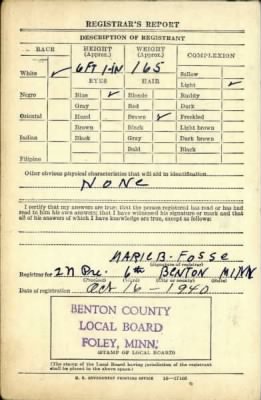 REGISTRAR'S REPORT
DESCRIPTION OF REGISTRANT
RACE HEIGHT (Approx.) WEIGHT (Approx.) COMPLEXION
White ✓ 6 FT 1 IN 165 Sallow
EYES HAIR Light ✓
Negro Blue ✓ Blonde Ruddy
Gray Red Dark
Oriental Hazel Brown ✓ Freckled
Brown Black Light brown
Indian Black Gray Dark brown
Bald Black
Filipino
Other obvious physical characteristics that will aid in identification
NONE
I certify that my answers are true; that the person registered has read or has had
read to him his own answers; that I have witnessed his signature or mark and that
all of his answers of which I have knowledge are true, except as follows:
MARIE B. FOSSE
(Signature of registrar)
Registrar for 2nd Prc. 6th BENTON MINN
(Precinct) (Ward) (City or county) (State)
Date of registration Oct 16 - 1940
BENTON COUNTY
LOCAL BOARD
FOLEY, MINN.
(STAMP OF LOCAL BOARD)
(The stamp of the Local Board having jurisdiction of the registrant
shall be placed in the above space.)
U. S. GOVERNMENT PRINTING OFFICE 16—17105